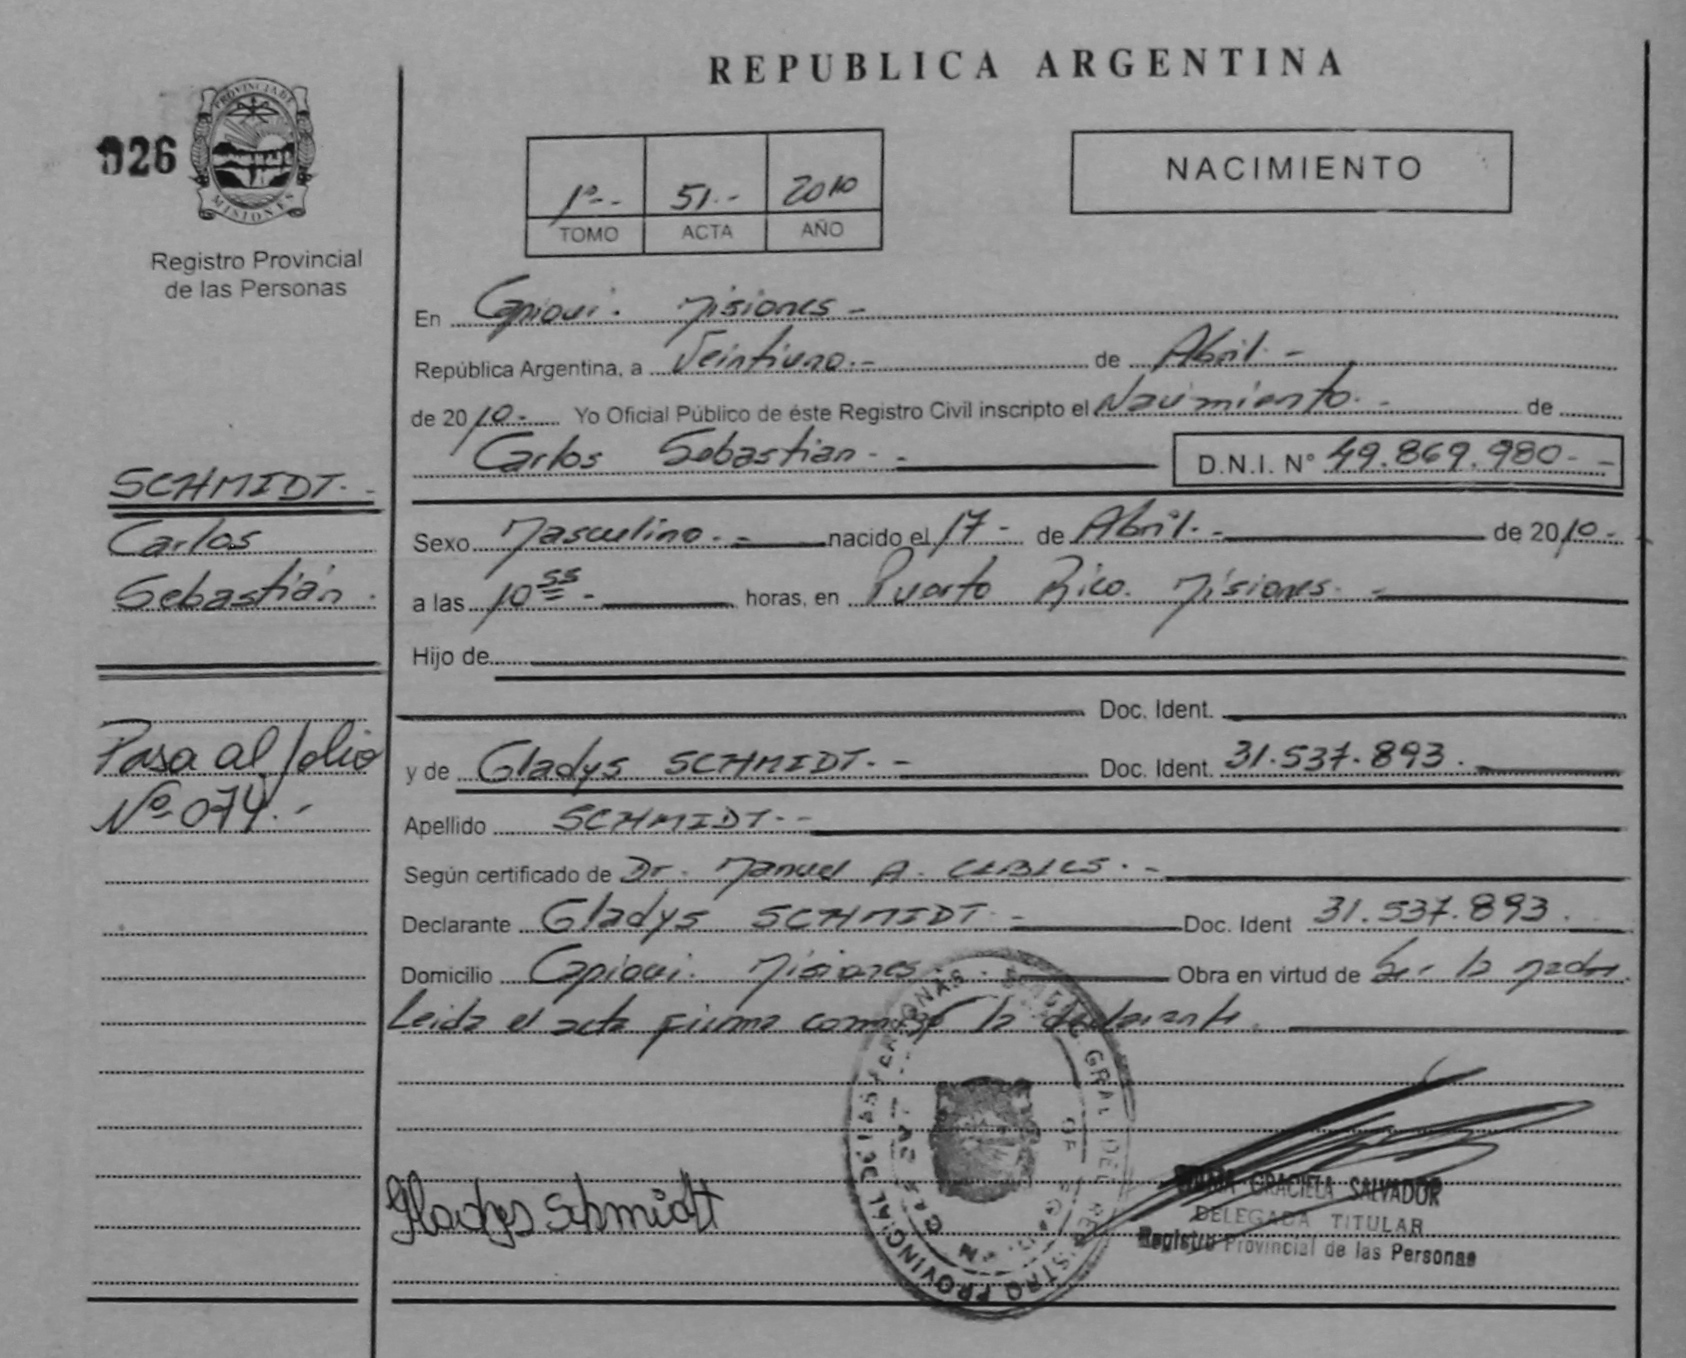 REPUBLICA ARGENTINA
026
PROVINCIA DE
MISIONES
Registro Provincial
de las Personas
1º.- 51.- 2010
TOMO ACTA AÑO
NACIMIENTO
En Capiovi. Misiones.-
República Argentina, a Veintiuno.- de Abril.-
de 2010.- Yo Oficial Público de éste Registro Civil inscripto el Nacimiento.- de
Carlos Sebastian.- D.N.I. Nº 49.869.980.-
SCHMIDT.-
Carlos
Sebastián.
Sexo Masculino.- nacido el 17- de Abril.- de 2010.-
a las 10 55.- horas, en Puerto Rico. Misiones.-
Hijo de
Doc. Ident.
Pasa al folio
Nº 074.-
y de Gladys SCHMIDT.- Doc. Ident. 31.537.893.-
Apellido SCHMIDT.-
Según certificado de Dr. Manuel A.
Declarante Gladys SCHMIDT.- Doc. Ident 31.537.893.
Domicilio Capiovi. Misiones.- Obra en virtud de Ser la madre.
Leida el acta firma conmigo la declarante.
Gladys Schmidt
GRACIELA SALVADOR
DELEGADA TITULAR
Registro Provincial de las Personas